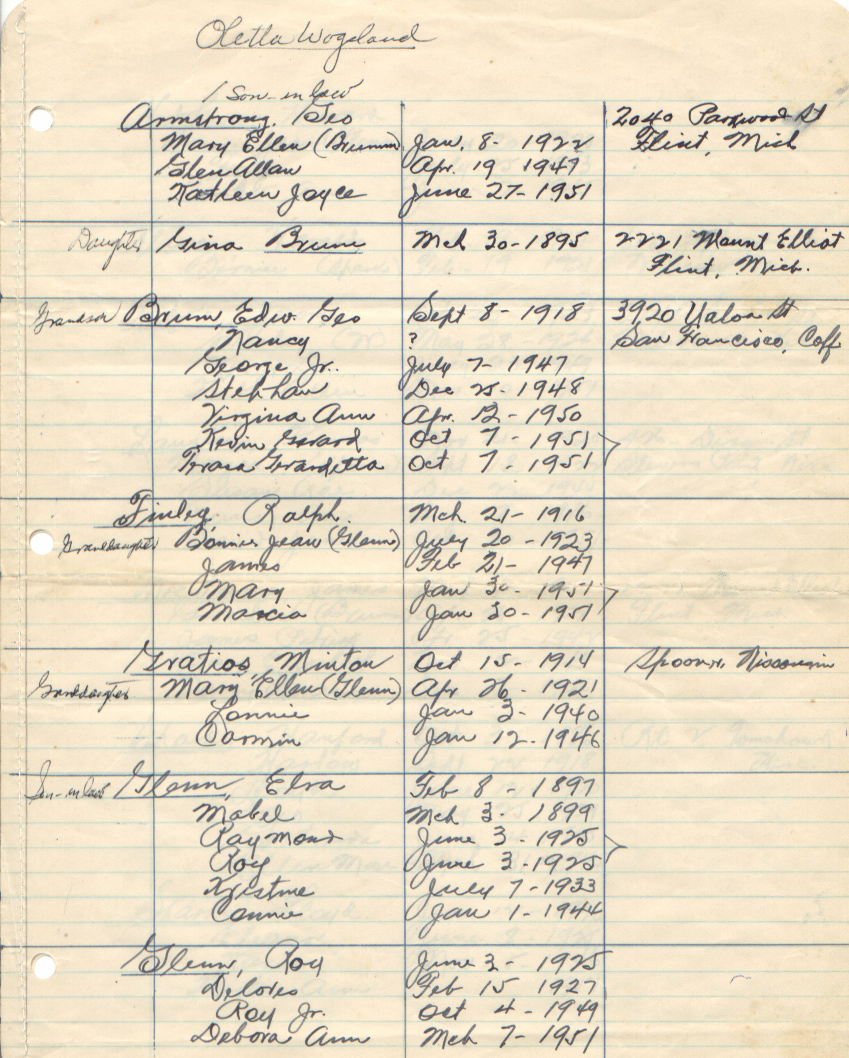 Oletta Wogsland
/ Son-in law
Armstrong, Geo 2040 Parkwood St
Mary Ellen (Brumm) Jan. 8- 1922 Flint, Mich
Glen Allan Apr. 19 1947
Kathleen Joyce June 27-1951
Daughter Gina Brum Mch 30-1895 2221 Mount Elliot
Flint, Mich.
Grandson Brum, Edw. Geo Sept 8-1918 3920 St
Nancy ? San Francisco, Calf
George Jr. July 7-1947
Stephan Dec 25-1948
Virgina Ann Apr. 12-1950
Kevin Gerard Oct 7-1951
Terasa Gerardetta Oct 7-1951
Finley, Ralph Mch. 21-1916
Granddaughter Bonnie Jean (Glenn) July 20-1923
James Feb 21-1947
Mary Jan 30-1951
Marcia Jan 30-1951
Gratios, Minton Oct 15-1914 Spooner, Wisconsin
Granddaughter Mary Ellen (Glenn) Apr 26-1921
Lonnie Jan 3-1940
Darmin Jan 12-1946
Son-in law Glenn, Elva Feb 8-1897
Mabel Mch 3-1899
Raymond June 3-1925
Roy June 3-1925
Kristine July 7-1933
Connie Jan 1-1944
Glenn, Roy June 3-1925
Delores Feb 15 1927
Roy Jr. Oct 4-1949
Debora Ann Mch 7-1951